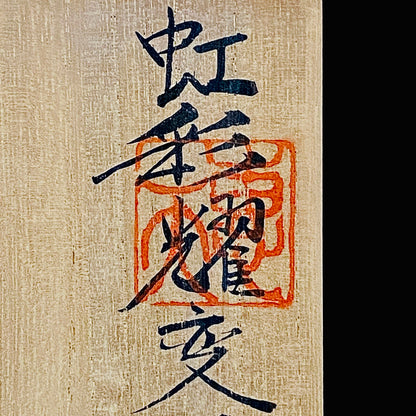 虹彩耀変